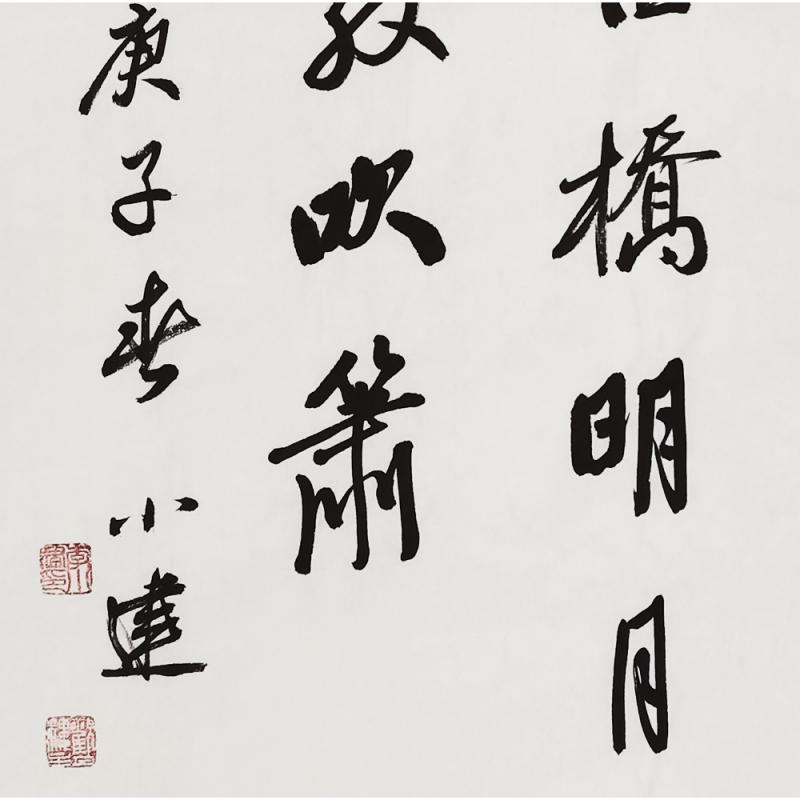 橋明月
吹簫
庚子春 小